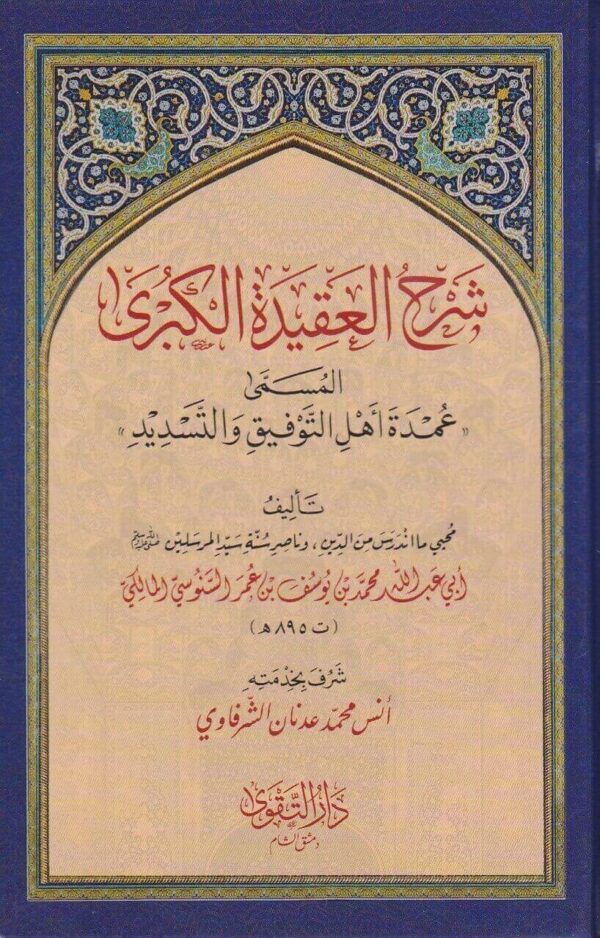 شَرْحُ العَقِيدَةِ الكُبْرَى
المُسَمَّى
« عُمْدَةَ أَهْلِ التَّوْفِيقِ وَالتَّسْدِيدِ »
تَأْلِيفُ
مُحيي ما اندَرَسَ مِنَ الدِّينِ ، وناصِرِ سُنَّةِ سَيِّدِ المرسَلِين ﷺ
أَبي عَبدِ اللهِ محمَّدِ بنِ يُوسُفَ بنِ عُمَرَ السَّنُوسِيِّ المالِكِيِّ
( ت ٨٩٥ هـ )
شَرُفَ بِخِدْمَتِهِ
أنس محمّد عدنان الشّرفاوي
دَارُ التَّقْوَى
دمشق الشام